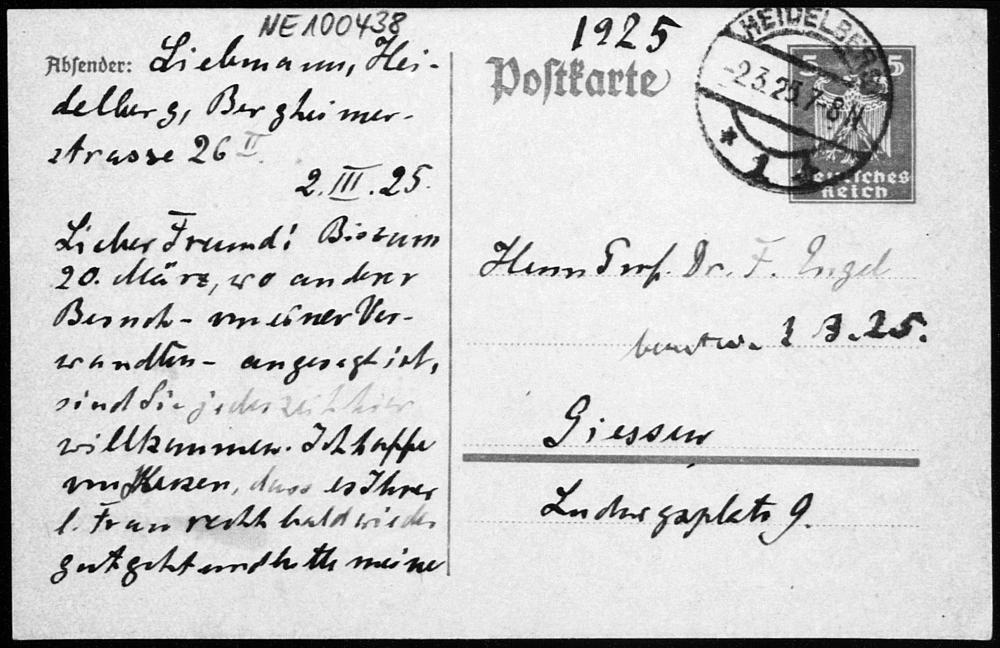 NE100438
1925
Absender: Liebmann, Hei-
delberg, Bergheimer-
strasse 26 II.
2. III. 25.
Lieber Freund! Bis zum
20. März, wo anderer
Besuch - von einer Ver-
wandten - angesagt ist,
sind Sie jederzeit hier
willkommen. Ich hoffe
von Herzen, dass es Ihrer
l. Frau recht bald wieder
gut geht und bitte meine
Postkarte
HEIDELBERG
-2.3.25.7-8N
* 1
5 5
Deutsches
Reich
Herrn Prof. Dr. F. Engel
beantw. 3.25.
Giessen
Ludwigsplatz 9.